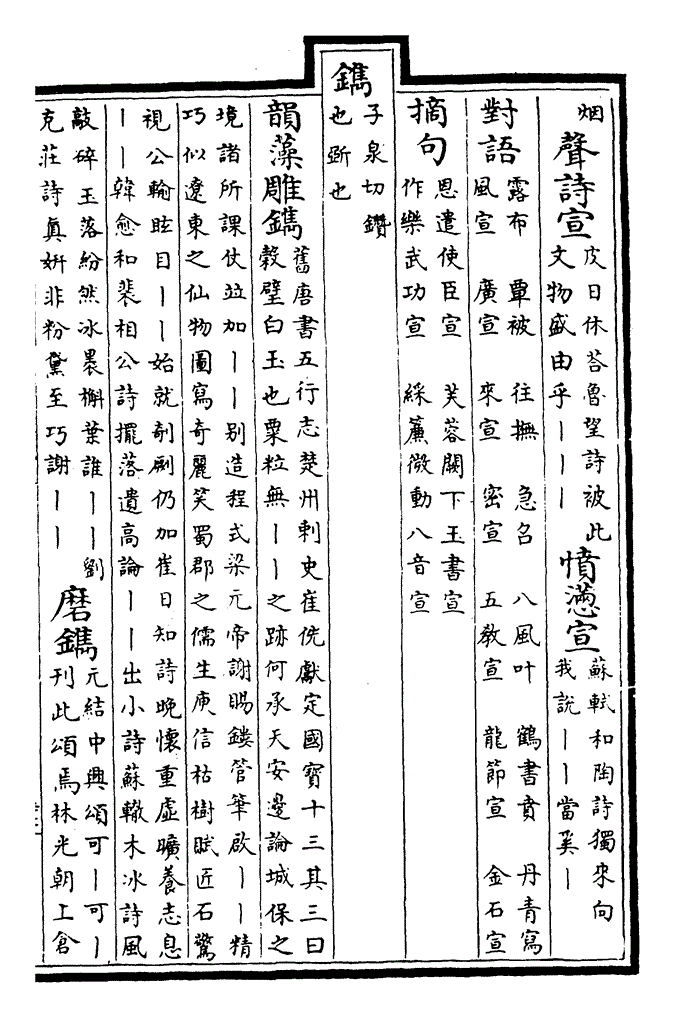 烟 聲詩宣 皮日休荅魯望詩被此文物盛由乎丨丨丨 憤懣宣 蘇軾和陶詩獨來向我說丨丨當奚丨
對語 露布 覃被 往撫 急名 八風叶 鶴書賁 丹青寫
風宣 廣宣 來宣 密宣 五教宣 龍節宣 金石宣
摘句 恩遣使臣宣 芙蓉闕下玉書宣
作樂武功宣 綵簾微動八音宣
鐫 子泉切鑽也斲也
韻藻 雕鐫 舊唐書五行志楚州刺史崔侁獻定國寶十三其三曰
穀璧白玉也粟粒無丨丨之跡何承天安邊論城保之
境諸所課仗竝加丨丨别造程式梁元帝謝賜鏤管筆啟丨丨精
巧似遼東之仙物圖寫奇麗笑蜀郡之儒生庾信枯樹賦匠石驚
視公輸眩目丨丨始就剞劂仍加崔日知詩晚懷重虛曠養志息
丨丨韓愈和裴相公詩擺落遺高論丨丨出小詩蘇轍木冰詩風
敲碎玉落紛然冰裹槲葉誰丨丨劉
克莊詩真妍非粉黛至巧謝丨丨
磨鐫 元結中興頌可丨可丨
刊此頌焉林光朝上倉